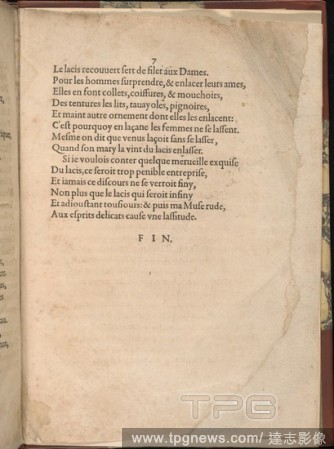 7
Le lacis recouuert sert de filet aux Dames.
Pour les hommes surprendre, & enlacer leurs ames,
Elles en font collets, coiffures, & mouchoirs,
Des tentures les lits, tauayoles, pignoires,
Et maint autre ornement dont elles les enlacent:
C'est pourquoy en laçant les femmes ne se lassent.
Mesme on dit que venus laçoit sans se lasser,
Quand son mary la vint du lacis enlasser.
Si ie voulois conter quelque merueille exquise
Du lacis, ce seroit trop penible entreprise,
Et iamais ce discours ne se verroit finy,
Non plus que le lacis qui seroit infiny
Et adioustant tousiours: & puis ma Muse rude,
Aux esprits delicats cause vne lassitude.
FIN.
TPG
www.tpgnews.com/達志影像